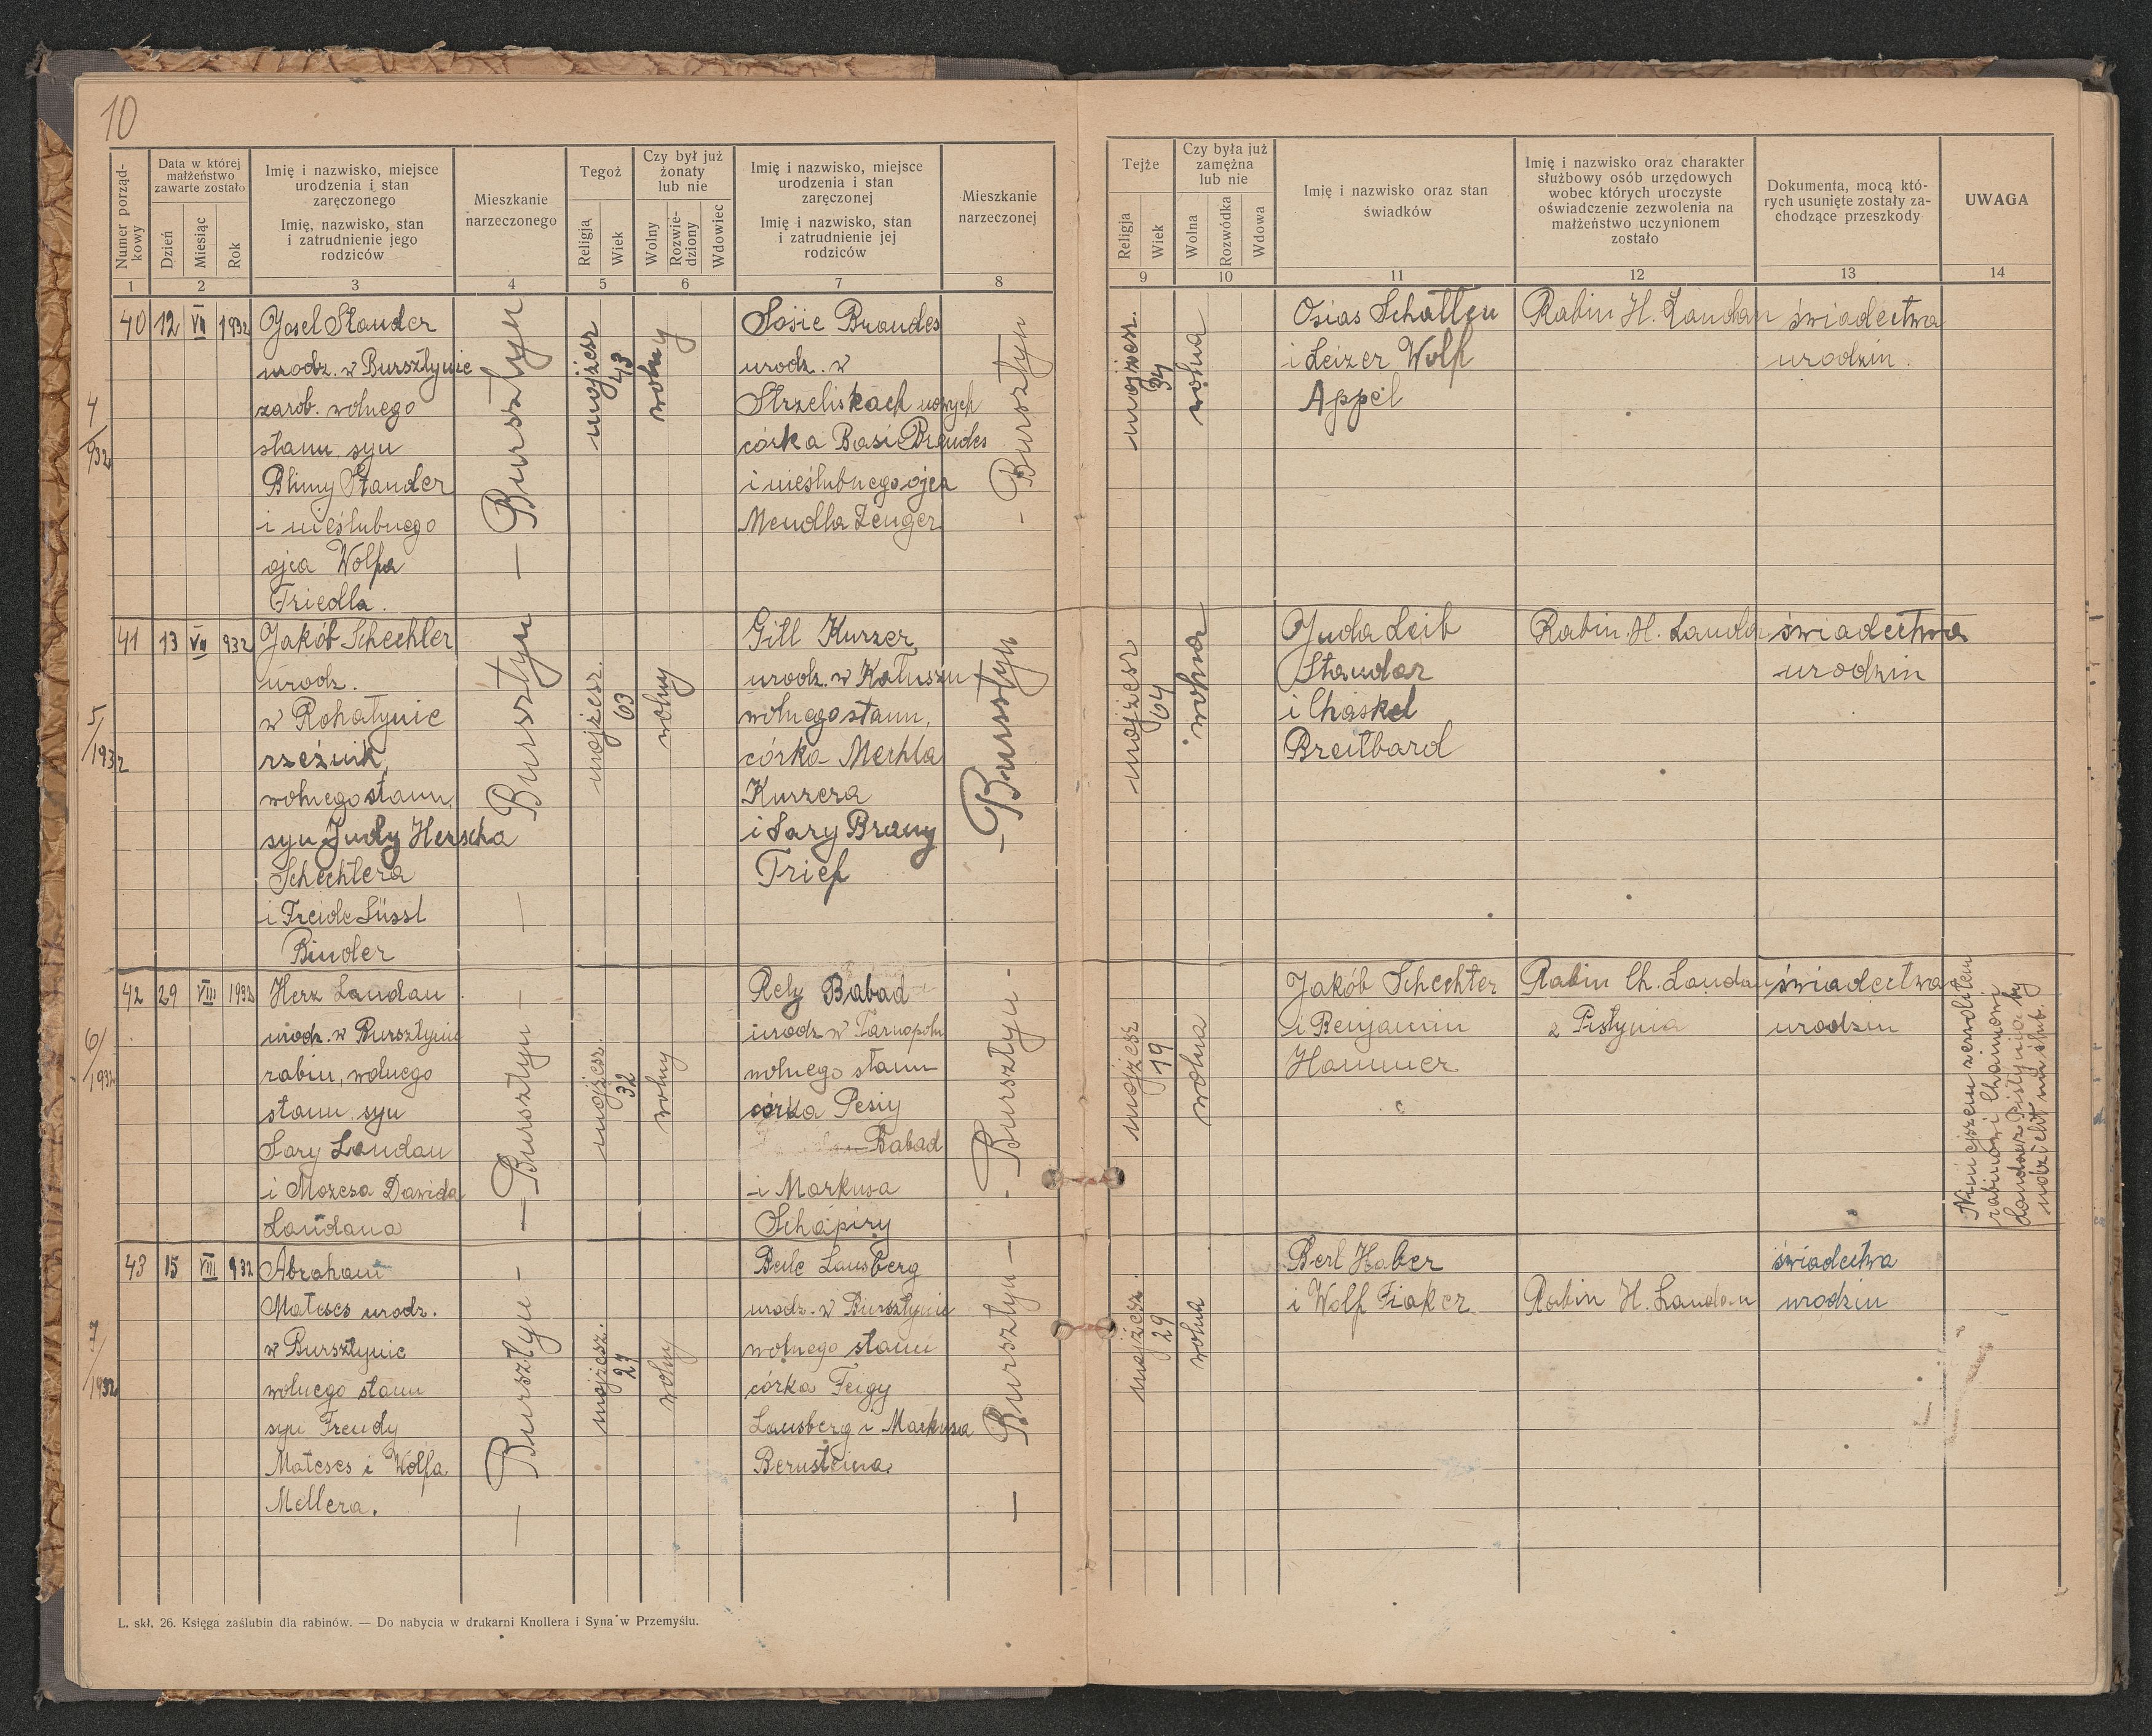 10
Numer porząd-
kowy
Data w której
małżeństwo
zawarte zostało
Dzień
Miesiąc
Rok
Imię i nazwisko, miejsce
urodzenia i stan
zaręczonego
Imię, nazwisko, stan
i zatrudnienie jego
rodziców
Mieszkanie
narzeczonego
Tegoż
Religja
Wiek
Czy był już
żonaty
lub nie
Wolny
Rozwie-
dziony
Wdowiec
Imię i nazwisko, miejsce
urodzenia i stan
zaręczonej
Imię i nazwisko, stan
i zatrudnienie jej
rodziców
Mieszkanie
narzeczonej
Tejże
Religja
Wiek
Czy była już
zamężna
lub nie
Wolna
Rozwódka
Wdowa
Imię i nazwisko oraz stan
świadków
Imię i nazwisko oraz charakter
służbowy osób urzędowych
wobec których uroczyste
oświadczenie zezwolenia na
małżeństwo uczynionem
zostało
Dokumenta, mocą któ-
rych usunięte zostały za-
chodzące przeszkody
UWAGA
1 2 3 4 5 6 7 8 9 10 11 12 13 14
4/932
40 12 VII 1932
Josel Stander
urodz. w Bursztynie
zarob. wolnego
stanu syn
Blimy Stander
i nieślubnego
ojca Wolfa
Friedla.
— Bursztyn
mojżesz
43
wolny
Sosie Brandes
urodz. w
Strzeliskach nowych
córka Basi Brandes
i nieślubnego ojca
Mendla Zenger
- Bursztyn
mojżesz.
34
wolna
Osias Schatten
i Leizer Wolf
Appel
Rabin H. Landau
świadectwa
urodzin.
5/1932
41 13 VII 932
Jakób Schechter
urodz.
w Rohatynie
rzeźnik,
wolnego stanu,
syn Judy Herscha
Schechtera
i Freide Süssl
Binder
— Bursztyn
mojżesz.
63
wolny
Gitl Kurzer
urodz. w Kałuszu
wolnego stanu,
córka Merhla
Kurzera
i Sary Brany
Trief
— Bursztyn
mojżesz
64
wolna
Juda Leib
Stander
i Chaskel
Breitbard
Rabin. H. Landau
świadectwa
urodzin
6/1932
42 29 VIII 1932
Herz Landau
urodz. w Bursztynie
rabin, wolnego
stanu syn
Sary Landau
i Mozesa Dawida
Landaua
— Bursztyn —
mojżesz.
32
wolny
Rely Babad
urodz w Tarnopolu
wolnego stanu
córka Pesiy
Babad
i Markusa
Schapiry
- Bursztyn -
mojżesz
19
wolna
Jakób Schechter
i Benjamin
Hammer
Rabin Ch. Landau
z Pistynia
świadectwa
urodzin
Niniejszem zezwoliłem
rabinowi Chaimowi
Landau z Pistynia by
udzielił mi ślub.
7/1932
43 15 VIII 932
Abraham
Mateses urodz.
w Bursztynie
wolnego stanu
syn Freudy
Mateses i Wolfa
Mellera.
— Bursztyn -
mojżesz.
27
wolny
Beile Lausberg
urodz. w Bursztynie
wolnego stanu
córka Feigy
Lausberg i Markusa
Bernsteina
— Bursztyn —
mojżesz.
29
wolna
Berl Haber
i Wolf Fiaker
Rabin H. Landau
świadectwa
urodzin
L. skł. 26. Księga zaślubin dla rabinów. — Do nabycia w drukarni Knollera i Syna w Przemyślu.